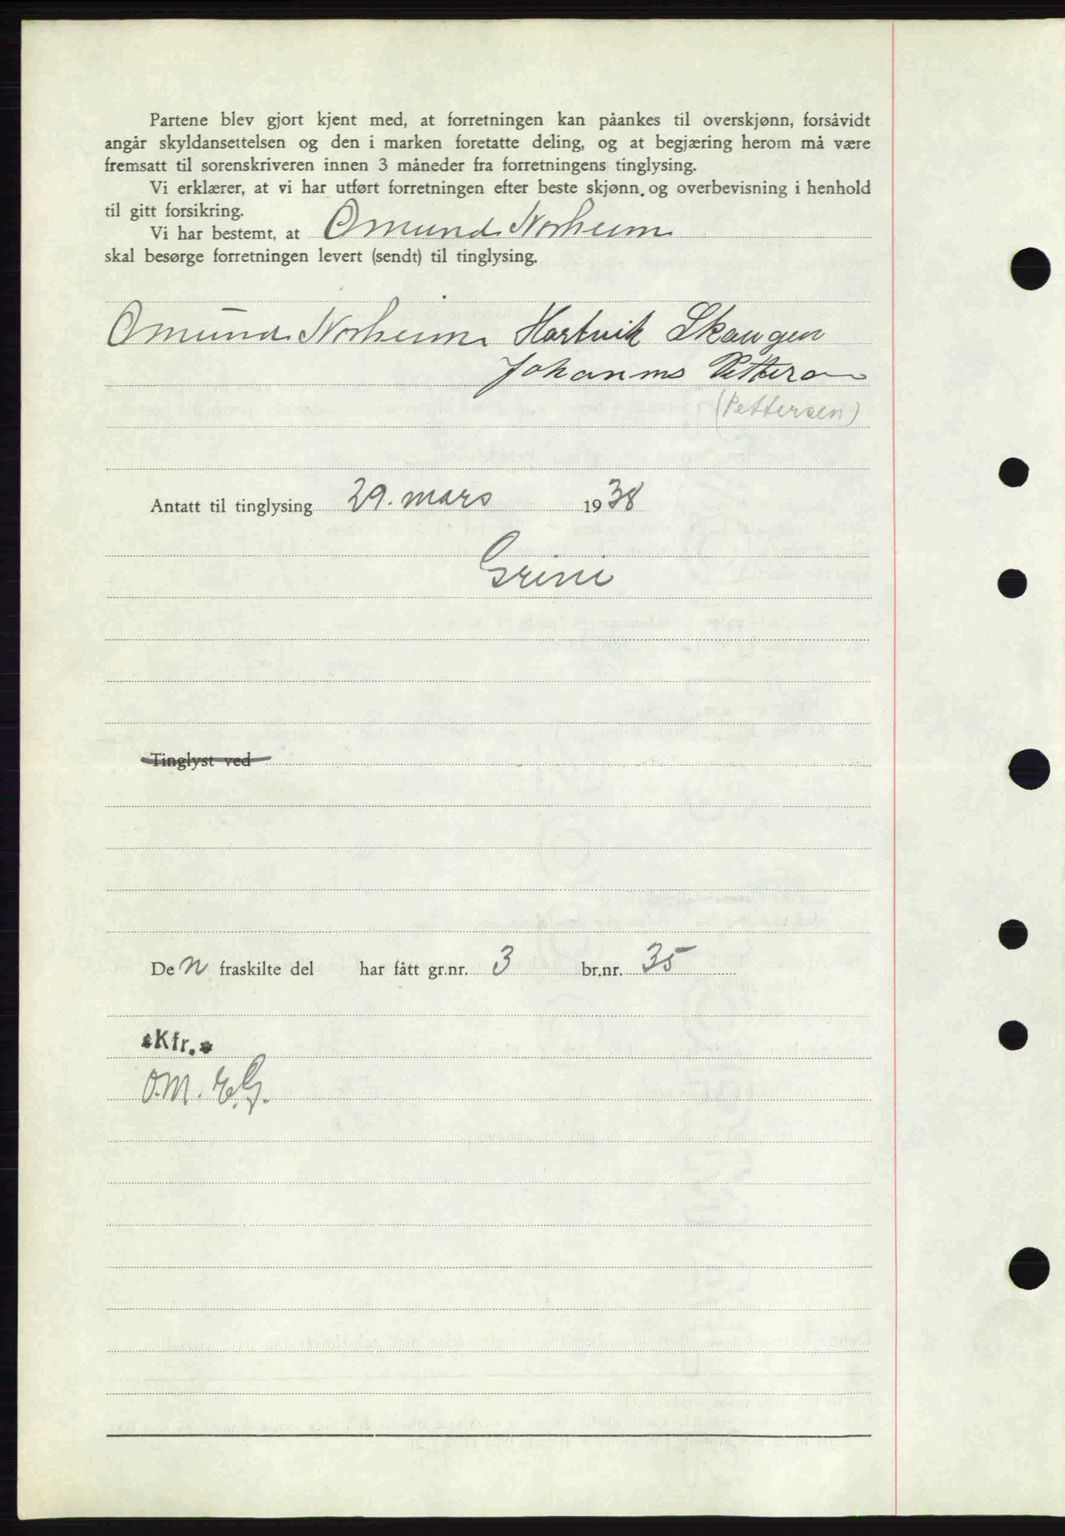 Partene blev gjort kjent med, at forretningen kan påankes til overskjønn, forsåvidt
angår skyldansettelsen og den i marken foretatte deling, og at begjæring herom må være
fremsatt til sorenskriveren innen 3 måneder fra forretningens tinglysing.
Vi erklærer, at vi har utført forretningen efter beste skjønn og overbevisning i henhold
til gitt forsikring.
Vi har bestemt, at Omund Norheim
skal besørge forretningen levert (sendt) til tinglysing.
Omund Norheim Hartvik Skaugen
Johannes Petterson
(Pettersen)
Antatt til tinglysing 29. mars 1938
Grini
Tinglyst ved
Den fraskilte del har fått gr.nr. 3 br.nr. 35
*Kfr.*
O.M. E.G.